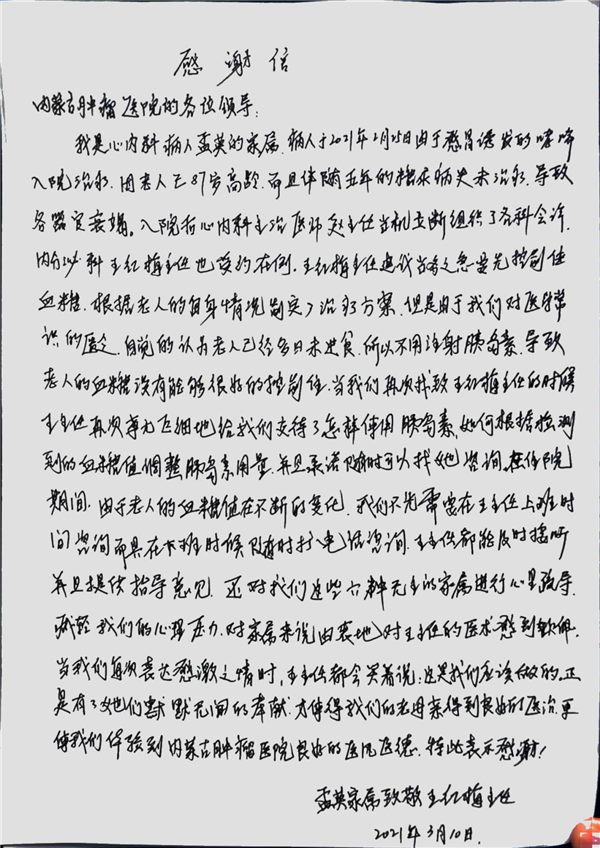 感谢信
内蒙古肿瘤医院的各位领导:
我是心内科病人孟英的家属.病人于2021年2月25日由于感冒诱发的哮喘
入院治疗.因老人已87岁高龄.而且伴随五年的糖尿病史未治疗.导致
各器官衰竭。入院后心内科主治医师赵主任当机立断组织了各科会诊.
内分泌科王红梅主任也被约在例.王红梅主任建议当务之急要先控制住
血糖.根据老人的自身情况制定了治疗方案.但是由于我们对医学常
识的匮乏.自觉的认为老人已经多日未进食.所以不用注射胰岛素.导致
老人的血糖没有能够很好的控制住.当我们再次找到王红梅主任的时候
王主任再次事无巨细地给我们交待了怎样使用胰岛素.如何根据检测
到的血糖值调整胰岛素用量.并且承诺随时可以找她咨询.在住院
期间.由于老人的血糖值在不断的变化.我们不光需要在王主任上班时
间咨询而且在下班时候随时打电话咨询.王主任都能及时接听
并且提供指导意见.还对我们这些六神无主的家属进行心里疏导.
减轻我们的心理压力.对家属来说由衷地对王主任的医术感到钦佩.
当我们每次表达感激之情时.王主任都会笑着说.这是我们应该做的.正
是有了她们默默无闻的奉献.才使得我们的老母亲得到良好的医治.更
使我们体验到内蒙古肿瘤医院良好的医风医德.特此表示感谢!
孟英家属致敬王红梅主任
2021年3月10日.